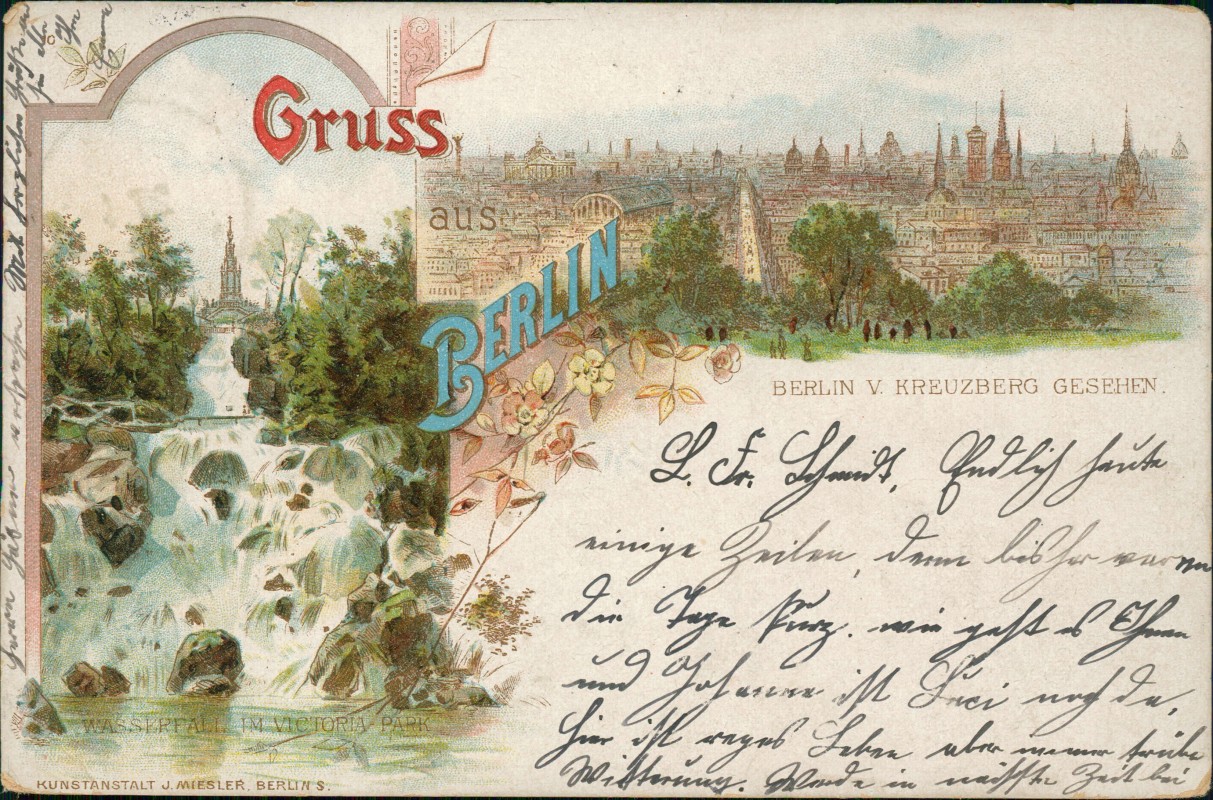 Gruss
aus
BERLIN
BERLIN V. KREUZBERG GESEHEN.
L. Fr. Schmidt, Endlich heute
einige Zeilen, denn bisher waren
die Tage kurz. wie geht es Ihnen
und Johanne ist Luci noch da,
hier ist reges Leben aber immer trübe
Witterung. Werde in nächster Zeit bei
Herrn
Mit herzlichen Grüßen
WASSERFALL IM VICTORIA PARK
KUNSTANSTALT J. MIESLER, BERLIN S.